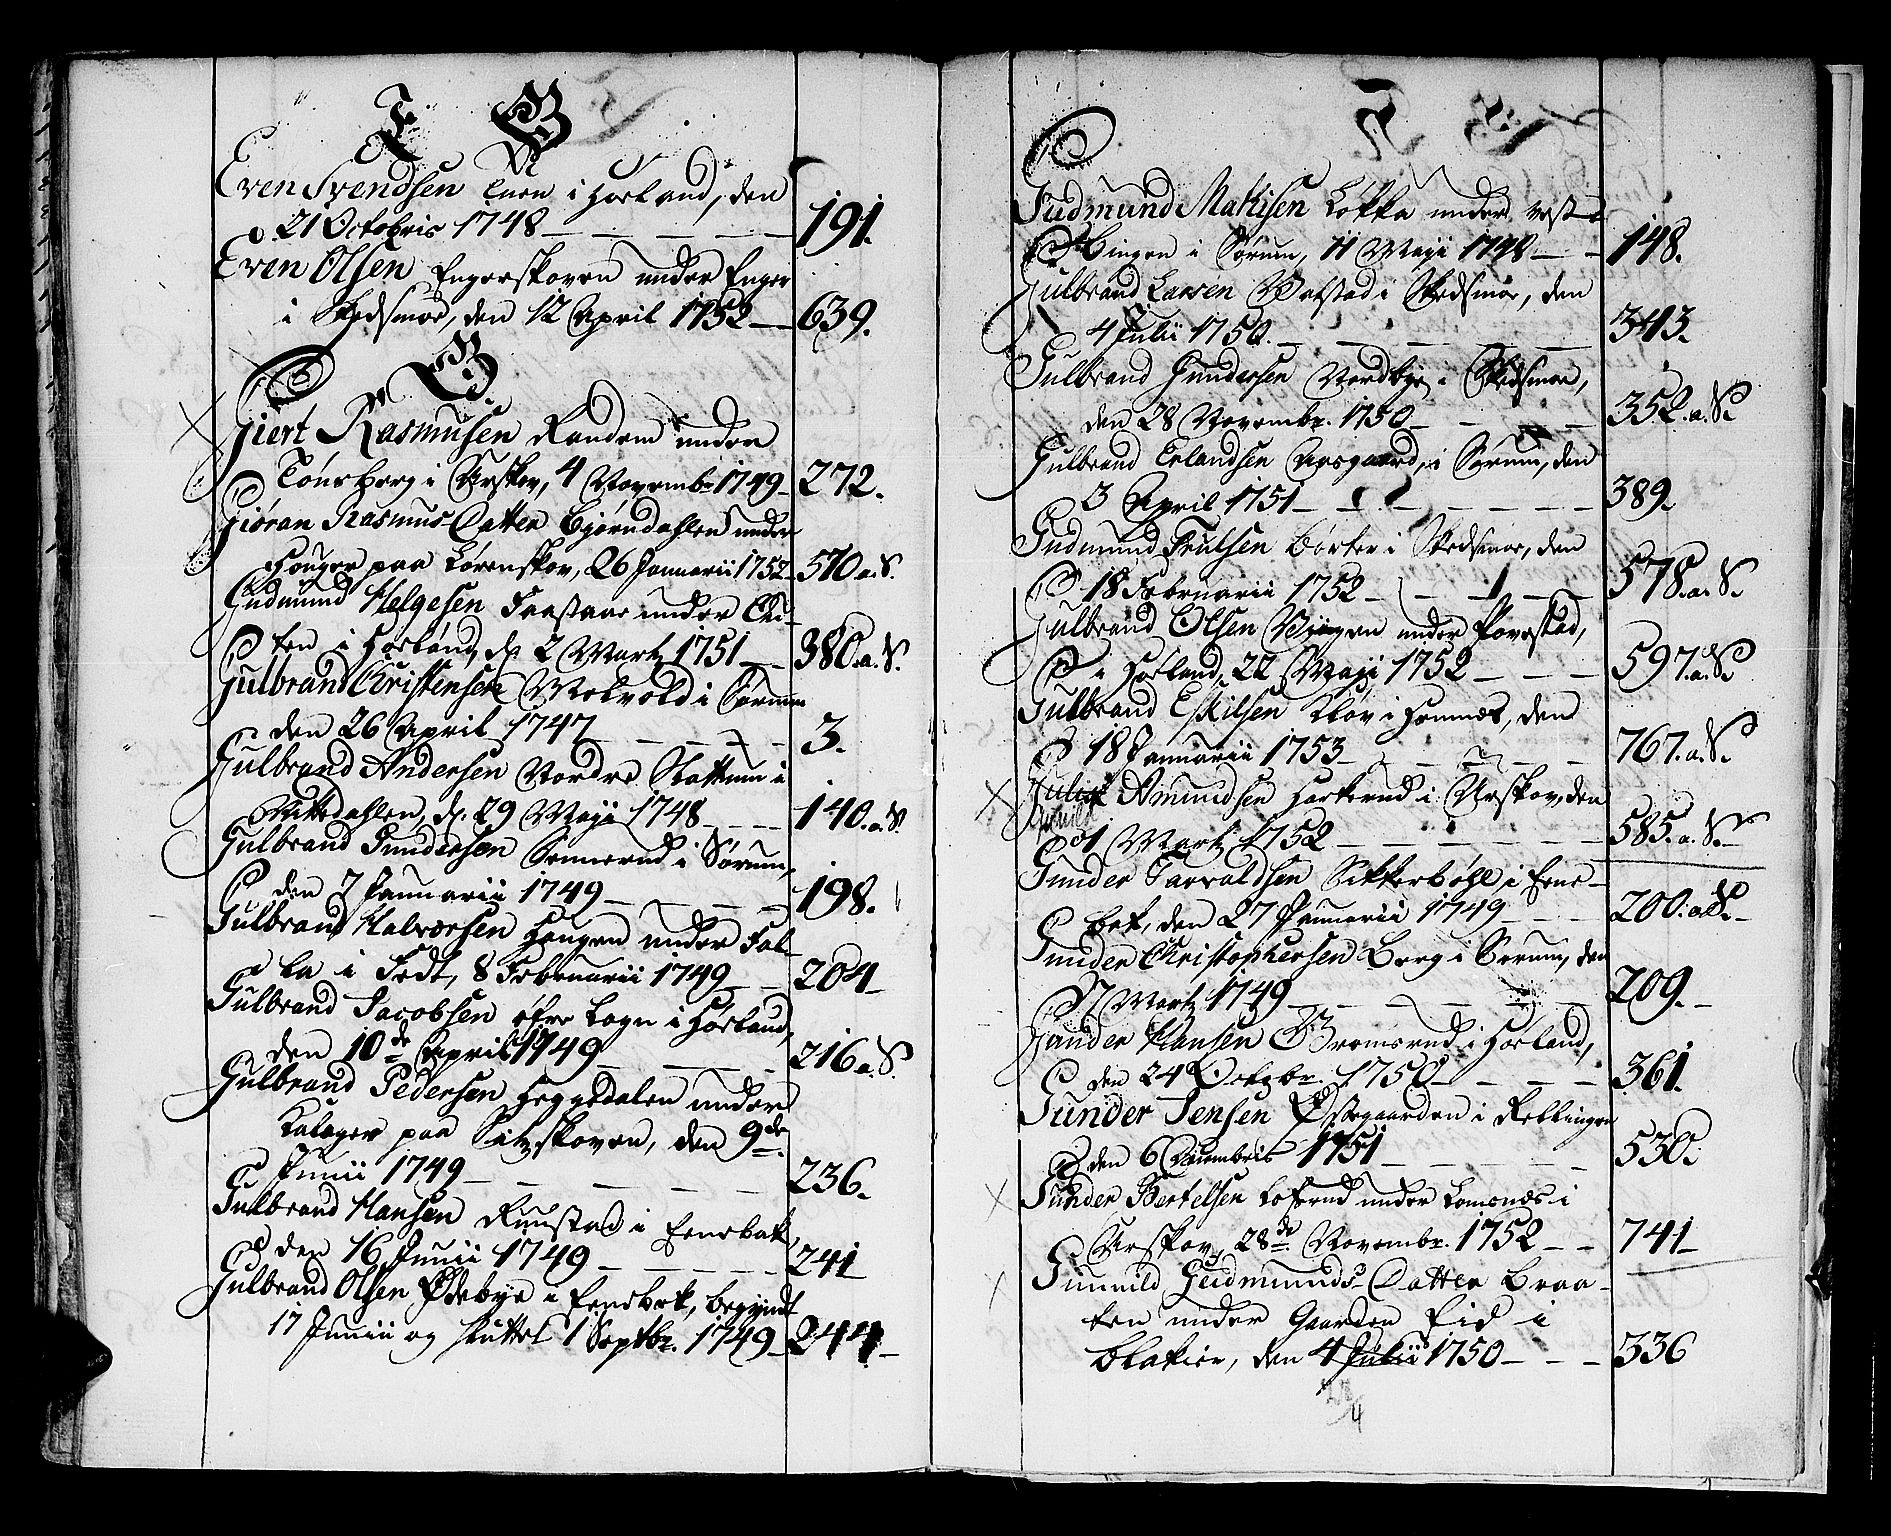 E G
Even Svendsen Tuen i Høeland, den
21 Octobris 1748 — 191.
Even Olsen Engerskoven under Enger
i Skedsmoe, den 12 April 1752 — 639.
G.
Giert Rasmusen Randem under
Tønsberg i Urskov, 4 Novembr 1749 — 272.
Giøran Rasmus-Datter Biørndahlen under
Houger paa Lørenskov, 26 Januarii 1752 — 570 a. S.
Gudmund Helgesen Faastaae under Qvi-
ten i Høeland, d. 2 Martz 1751 — 380. a. S.
Gulbrand Christensen Melvold i Sørum
den 26 April 1747 — 3.
Gulbrand Andersen Nordre Slattum i
Nittedahlen, d. 29 Maji 1748 — 140. a. S.
Gulbrand Gundersen Sennerud i Sørum,
den 7 Januarii 1749 — 198.
Gulbrand Halvorsen Haugen under Fal-
la i Fedt, 8 Februarii 1749 — 204
Gulbrand Jacobsen øfre Logn i Høeland,
den 10de April 1749 — 216 a. S.
Gulbrand Pedersen Heggedalen under
Kulager paa Sitzskoven, den 9de
Junii 1749 — 236.
Gulbrand Hansen Ruustad i Enebak,
den 16 Junii 1749 — 241
Gulbrand Olsen Ødebye i Enebak, begyndt
17 Junii og sluttet 1 Septbr. 1749 — 244
Gudmund Mathisen Løkka under vest-
Bingen i Sørum, 11 Maji 1748 — 148.
Gulbrand Larsen Vestad i Skedsmoe, den
4 Julii 1750. — 343.
Gulbrand Gundersen Nordbye i Skedsmoe,
den 28 Novembr. 1750 — 352. a. S.
Gulbrand Erlandsen Aasgaard i Sørum, den
3 April 1751 — 389.
Gudmund Trulsen Børter i Skedsmoe, den
18 Februarii 1752 — 578. a. S.
Gulbrand Olsen under Povestad,
i Høeland, 22 Maji 1752 — 597. a. S.
Gulbrand Eskilsen Kløv i Hemnes, den
18 Januarii 1753 — 767. a. S.
Amundsen Harkerud i Urskov, den
Gunild
1 Martz 1752 — 585. a. S.
Gunder Tarvaldsen Sikkerbøhl i Ene-
bak, den 27 Januarii 1749 — 200. a. S.
Gunder Christophersen Berg i Sørum, den
7 Martz 1749 — 209.
Gunder Hansen Gromsrud i Høeland,
den 24 Octobr. 1750 — 361.
Gunder Jensen Østegaarden i Rellingen
den 6 Decembris 1751 — 530.
Gunder Bertelsen Loferud under Lomsnæs i
Urskov, 28de Novembr. 1752 — 741
Gunnild Gudmunds-Datter Braa-
ten under Gaarden Eid i
Blakier, den 4 Julii 1750 — 336
4